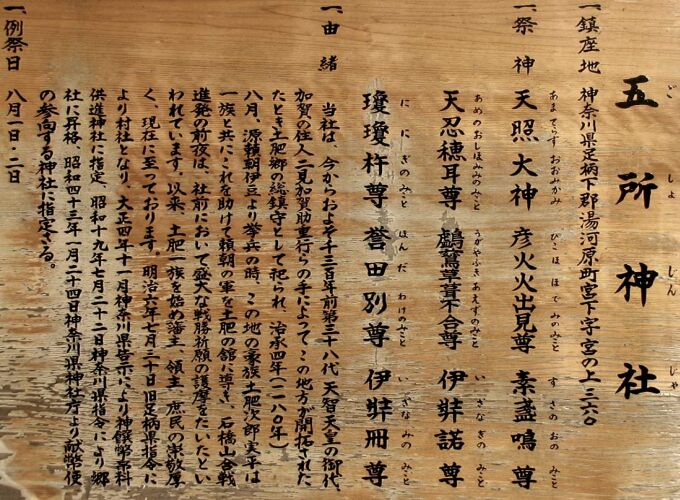 五所神社
ごしょじんじゃ
一、鎮座地 神奈川県足柄下郡湯河原町宮下字宮の上三六〇
一、祭神 天照大神 彦火火出見尊 素盞鳴尊
あまてらすおおみかみ ひこほほでみのみこと すさのおのみこと
天忍穂耳尊 鸕鶿草葺不合尊 伊弉諾尊
あめのおしほみみのみこと うがやふきあえずのみこと いさなぎのみこと
瓊瓊杵尊 誉田別尊 伊弉冊尊
ににぎのみこと ほんだわけのみこと いざなみのみこと
一、由緒
当社は、今からおよそ千三百年前第三十八代 天智天皇の御代、
加賀の住人二見加賀助重行らの手によってこの地方が開拓された
たとき土肥郷の総鎮守として祀られ、治承四年(一一八〇年)
八月、源頼朝伊豆より挙兵の時、この地の豪族土肥次郎実平は
一族と共にこれを助けて頼朝の軍を土肥の舘に導き、石橋山合戦
進発の前夜は、社前において盛大な戦勝祈願の護摩をたいたとい
われています。以来、土肥一族を始め藩主、領主、庶民の崇敬厚
く、現在に至っております。明治六年七月三十日旧足柄県指令に
より村社となり、大正四年十一月神奈川県告示により神饌幣帛料
供進神社に指定、昭和十九年七月二十二日神奈川県指令により郷
社に昇格、昭和四十三年一月二十四日神奈川県神社庁より献幣使
の参向する神社に指定さる。
一、例祭日 八月一日・二日